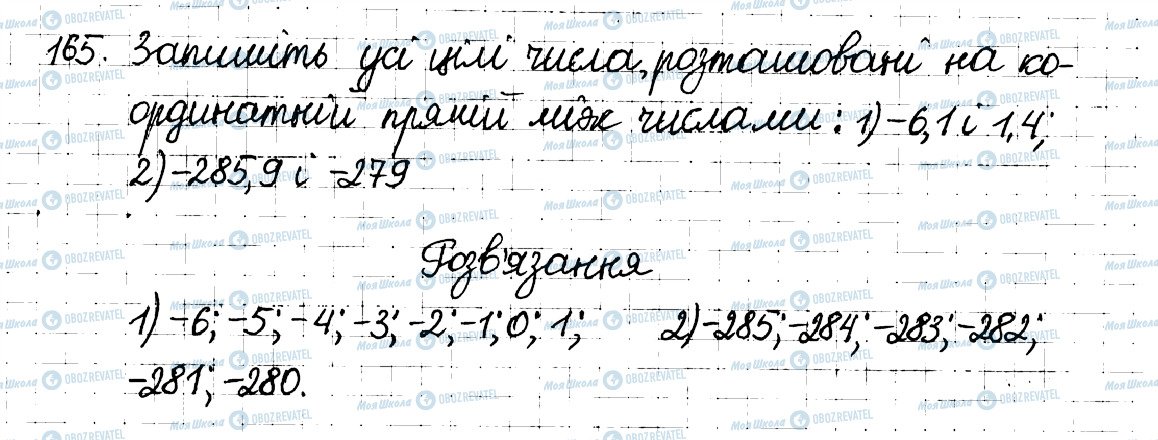 165. Запишіть усі цілі числа, розташовані на ко-
ординатній прямій між числами: 1) -6,1 і 1,4;
2) -285,9 і -279
Розв'язання
1) -6; -5; -4; -3; -2; -1; 0; 1; 2) -285; -284; -283; -282;
-281; -280.